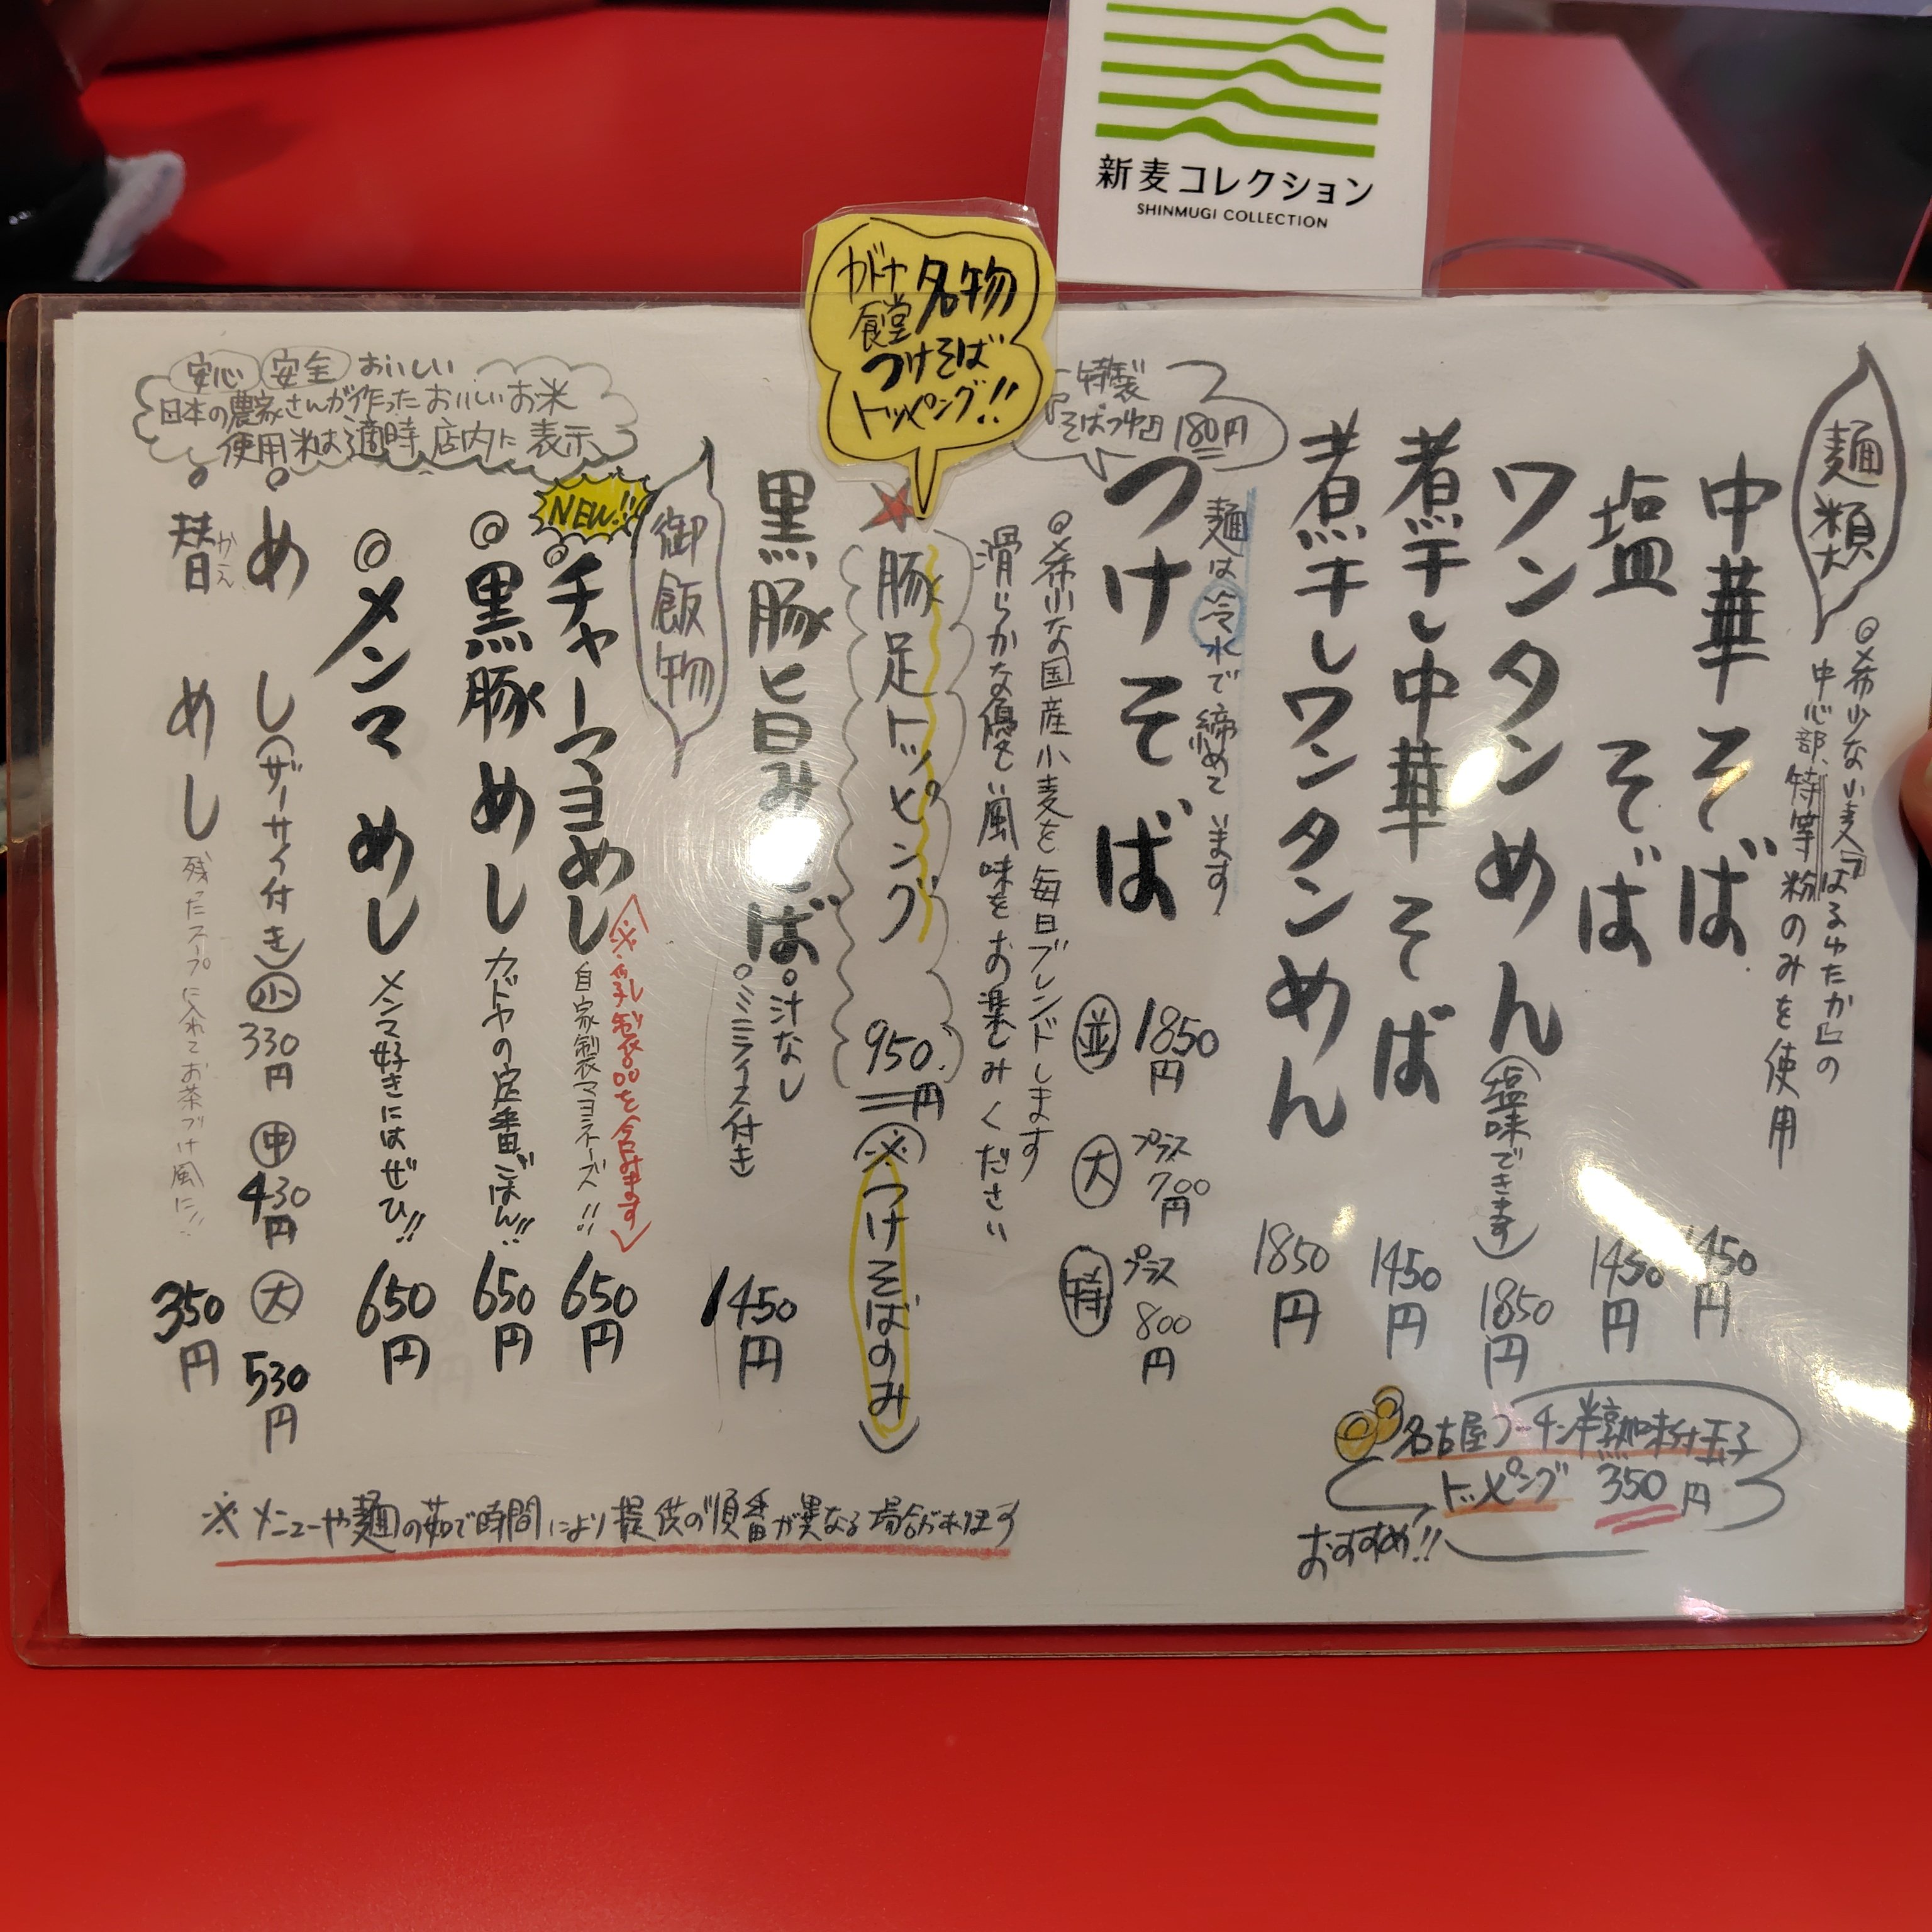 新麦コレクション
SHINMUGI COLLECTION
麺類
◎希少な小麦「はるゆたか」の
中心部、特等粉のみを使用
中華そば 1450円
塩そば 1450円
ワンタンめん(塩味できます) 1850円
煮干し中華そば 1450円
煮干しワンタンめん 1850円
名古屋コーチン半熟味付玉子
トッピング 350円
おすすめ!!
麺は冷水で締めています
特製
そばつゆ 180円
つけそば 並 1850円 大 プラス700円 特 プラス800円
◎希少な国産小麦を毎日ブレンドします
滑らかな優しい風味をお楽しみください
カドヤ
食堂
名物
つけそば
トッピング!!
豚足トッピング 950円(※つけそばのみ)
黒豚旨みそば 1450円
○汁なし
○ミニライス付き
御飯物
NEW!!
◎チャーマヨめし 自家製マヨネーズ!! 650円
(※乳製品を含みます)
◎黒豚めし カドヤの定番ごはん!! 650円
◎メンマめし メンマ好きにはぜひ!! 650円
安心 安全 おいしい
日本の農家さんが作ったおいしいお米
使用米は適時店内に表示
めし(ザーサイ付き) 小 330円 中 430円 大 530円
替めし 残ったスープに入れてお茶づけ風に!! 350円
かえ
※メニューや麺の茹で時間により提供の順番が異なる場合があります